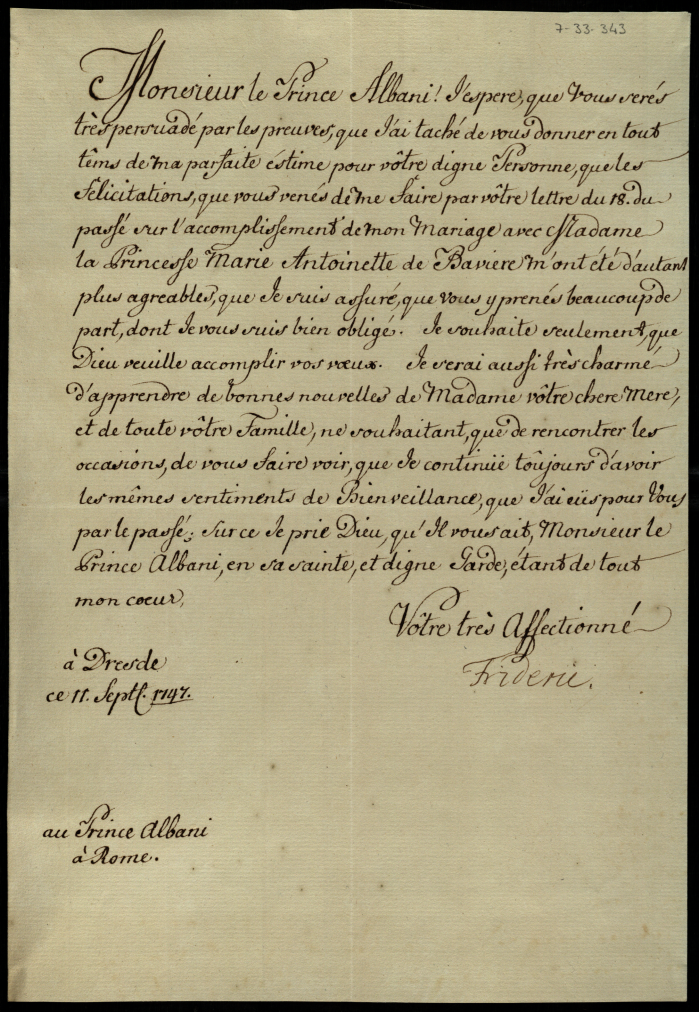 7-33-343
Monsieur le Prince Albani! J'espere, que Vous serés
très persuadé par les preuves, que J'ai taché de vous donner en tout
têms de ma parfaite éstime pour vôtre digne Personne, que les
Félicitations, que vous venés de me faire par vôtre lettre du 18. du
passé sur l'accomplissement de mon Mariage avec Madame
la Princesse Marie Antoinette de Baviere m'ont été d'autant
plus agreables, que Je suis assuré, que vous y prenés beaucoup de
part, dont Je vous suis bien obligé. Je souhaite seulement, que
Dieu veuille accomplir vos vœux. Je serai aussi très charmé
d'apprendre de bonnes nouvelles de Madame vôtre chere Mere,
et de toute vôtre Famille, ne souhaitant, que de rencontrer les
occasions, de vous faire voir, que Je continüe toûjours d'avoir
les mêmes sentiments de Bienveillance, que J'ai eüs pour Vous
par le passé; sur ce Je prie Dieu, qu'Il vous ait, Monsieur le
Prince Albani, en sa sainte, et digne Garde, étant de tout
mon cœur,
Vôtre très Affectionné
Frideric.
à Dresde
ce 11. Sept. 1747.
au Prince Albani
à Rome.